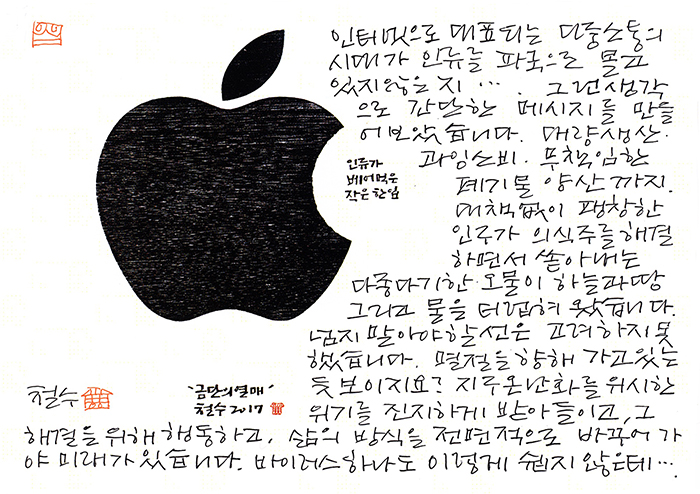 인터넷으로 대표되는 다중소통의
시대가 인류를 파국으로 몰고
있지않은 지 …. 그런생각
으로 간단한 메시지를 만들
어보았습니다. 대량생산·
과잉소비·무책임한
폐기물 양산까지.
대책없이 팽창한
인구가 의식주를 해결
하면서 쏟아내는
다종다기한 오물이 하늘과 땅
그리고 물을 더럽혀 왔습니다.
넘지말아야할선은 고려하지못
했습니다. 멸절을향해 가고있는
듯 보이지요? 지구온난화를 위시한
위기를 진지하게 받아들이고, 그
해결을 위해 행동하고, 삶의 방식을 전면적으로 바꾸어 가
야 미래가 있습니다. 바이러스하나도 이렇게 쉽지 않은데….
인류가
베어먹은
작은 한입
"금단의열매"
철수 2017
철수